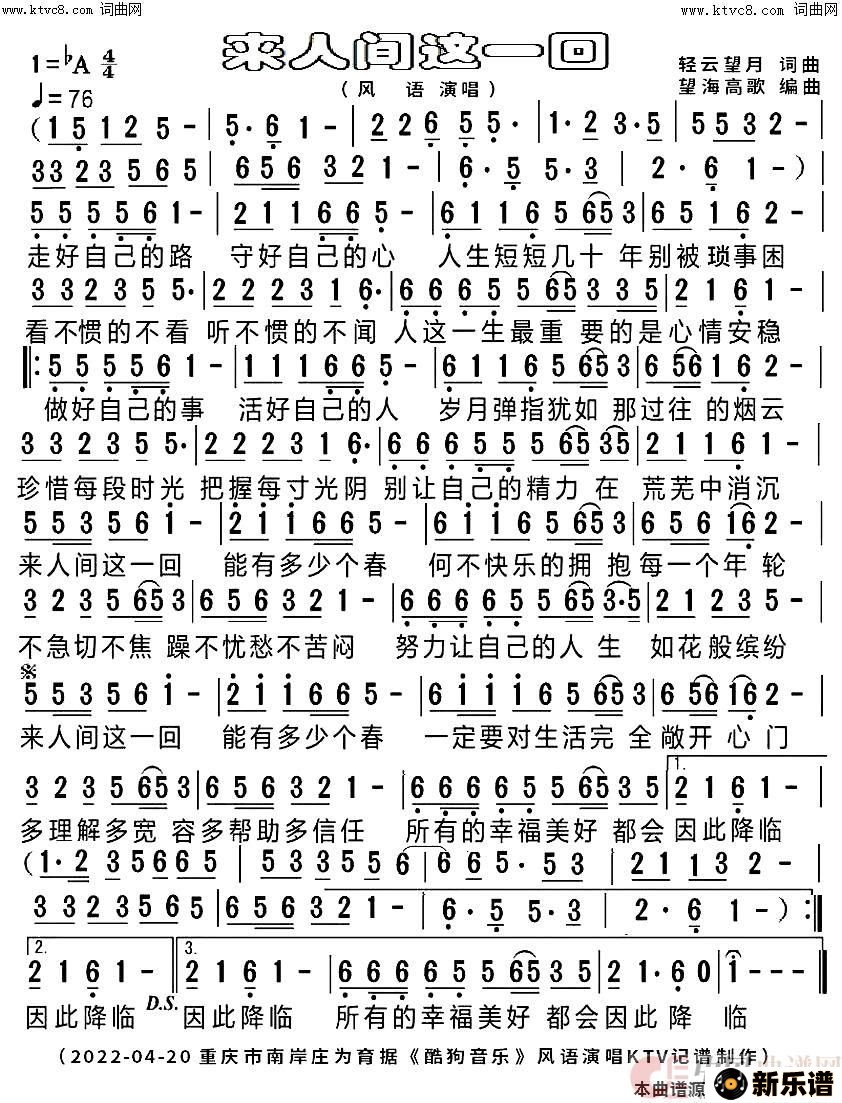 www.ktvc8.com 词曲网
www.ktvc8.com 词曲网
来人间这一回
1=♭A 4/4
♩=76
(风 语 演唱)
轻云望月 词曲
望海高歌 编曲
(1 5 1 2 5 - | 5· 6 1 - | 2 2 6 5 5· | 1· 2 3·5 | 5 5 3 2 - |
3 3 2 3 5 6 5 | 6 5 6 3 2 1 - | 6· 5 5· 3 | 2· 6 1 - ) |
5 5 5 5 6 1 - | 2 1 1 6 6 5 - | 6 1 1 6 5 65 3 | 6 5 1 6 2 - |
走好自己的路 守好自己的心 人生短短几十 年别被琐事困
3 3 2 3 5 5· | 2 2 2 3 1 6· | 6 6 6 6 5 5 65 3 3 5 | 2 2 1 6 1 - |
看不惯的不看 听不惯的不闻 人这一生最重 要的是心情安稳
‖: 5 5 5 5 6 1 - | 1 1 1 6 6 5 - | 6 1 1 6 5 65 3 | 6 56 1 6 2 - |
做好自己的事 活好自己的人 岁月弹指犹如 那过往 的烟云
3 3 2 3 5 5· | 2 2 2 3 1 6· | 6 6 6 5 5 65 35 | 2 1 1 6 1 - |
珍惜每段时光 把握每寸光阴 别让自己的精力 在 荒芜中消沉
5 5 3 5 6 1 - | 2 1 1 6 6 5 - | 6 1 1 6 5 65 3 | 6 5 6 16 2 |
来人间这一回 能有多少个春 何不快乐的拥 抱每一个年 轮
3 2 3 5 65 3 | 6 5 6 3 2 1 - | 6 6 6 6 5 5 65 3·5 | 2 1 2 3 1 - |
不急切不焦 躁不忧愁不苦闷 努力让自己的人 生 如花般缤纷
𝄋
5 5 3 5 6 1 - | 2 1 1 6 6 5 - | 6 1 1 6 5 65 3 | 6 56 16 2 |
来人间这一回 能有多少个春 一定要对生活完 全敞开 心 门
1.
3 2 3 5 65 | 6 5 6 3 2 1 - | 6 6 6 6 5 5 65 3 5 | 2 1 6 1 - |
多理解多宽 容多帮助多信任 所有的幸福美好 都会 因此降临
(1· 2 3 5 6 6 5 | 5 3 3 5 5 6 | 6 6· 5 6 5 3 | 2 1 1 3 2 - |
3 3 2 3 5 6 5 | 6 5 6 3 2 1 - | 6· 5 5· 3 | 2· 6 1 - ) :‖
2.
3.
2 1 6 1 - | 2 1 6 1 - | 6 6 6 6 5 5 65 3 5 | 2 1· 6 0 | 1 - - - ‖
因此降临 D.S. 因此降临 所有的幸福美好 都会因此降 临
(2022-04-20 重庆市南岸庄为育据《酷狗音乐》风语演唱KTV记谱制作)
本曲谱源 新乐谱